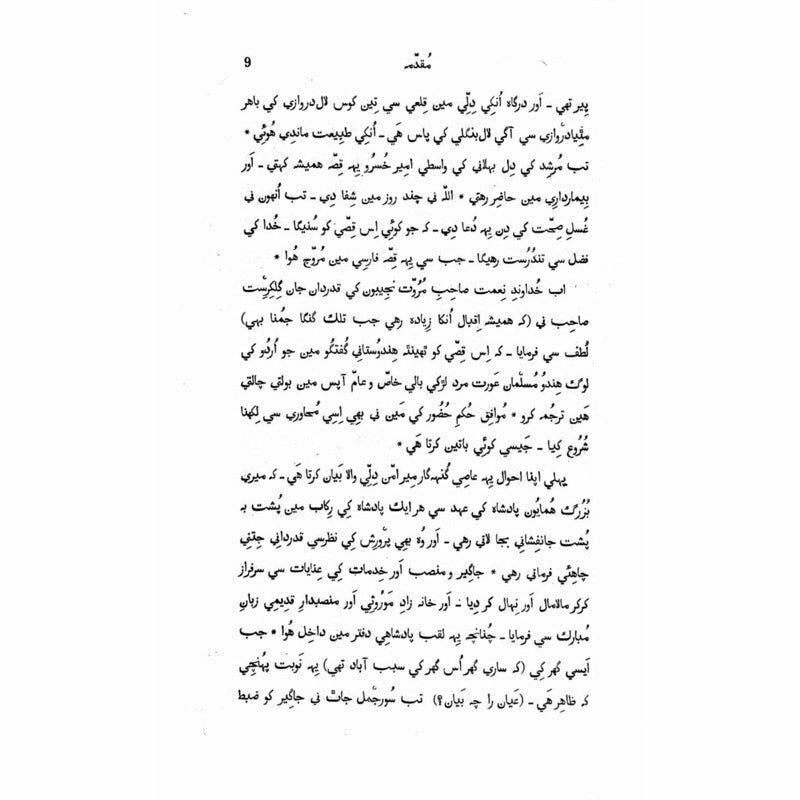 مُقدّمہ 9
پِیر تھي ـ اَور درگاہ اُنکِي دِلّي مین قلعي سي تِین کوس لال دروازي کي باھر
مٹِیا دروازي سي آگي لال بنگلي کي پاس ھَي ـ اُنکِي طبِیعت ماندِي ھُوئي *
تب مُرشِد کي دِل بہلاني کي واسطي امِیر خُسرَو یِہہ قِصّہ ھمیشہ کہتي ـ اَور
بِیمارداري مین حاضِر رھتي * اللّہ ني چند روز مین شِفا دِي ـ تب اُنھون ني
غُسلِ صِحّت کي دِن یِہہ دُعا دِي ـ کہ جو کوئي اِس قِصّي کو سُنیگا ـ خُدا کي
فضل سي تندُرُست رھیگا ـ جب سي یِہہ قِصّہ فارسِي مین مُروّج ھُوا *
اب خُداوندِ نِعمت صاحِبِ مُرُوّت نجِیبون کي قدردان جان گِلکرِسٹ
صاحِب ني (کہ ھمیشہ اِقبال اُنکا زِیادہ رھي جب تلک گنگا جمُنا بہي)
لُطف سي فرمایا ـ کہ اِس قِصّي کو ٹھینٹھ ھِندوستاني گُفتگُو مین جو اُردُو کي
لوگ ھِندُو مُسلمان عَورت مرد لڑکي بالي خاصّ و عامّ آپس مین بولتي چالتي
ھَین ترجُمہ کرو * مُوافِق حُکمِ حُضُور کي مَین ني بھي اِسِي مُحاوري سي لِکھنا
شُرُوع کِیا ـ جَیسي کوئي باتین کرتا ھَي *
پہلي اپنا احوال یِہہ عاصِي گُنہگار مِیر امّن دِلّي والا بَیان کرتا ھَي ـ کہ میري
بُزُرگ ھمایُون پادشاہ کي عہد سي ھر ایک پادشاہ کِي رِکاب مین پُشت بہ
پُشت جانفِشاني بجا لاتي رھي ـ اَور وُہ بھي پرورِش کِي نظر سي قدرداني جِتني
چاھِئي فرماتي رھي * جاگِیر و منصب اَور خِدمات کِي عِنایات سي سرفراز
کرکر مالامال اَور نِہال کر دِیا ـ اَور خانہ زادِ مَورُوثي اَور منصبدارِ قدیمِي زبانِ
مُبارک سي فرمایا ـ چُنانچہ یِہہ لقب پادشاھي دفتر مین داخِل ھُوا * جب
اَیسي گھر کِي (کہ ساري گھر اُس گھر کي سبب آباد تھي) یِہہ نَوبت پہُنچِي
کہ ظاھِر ھَي ـ (عَیان را چہ بَیان؟) تب سُورجمل جاٹ ني جاگِیر کو ضبط